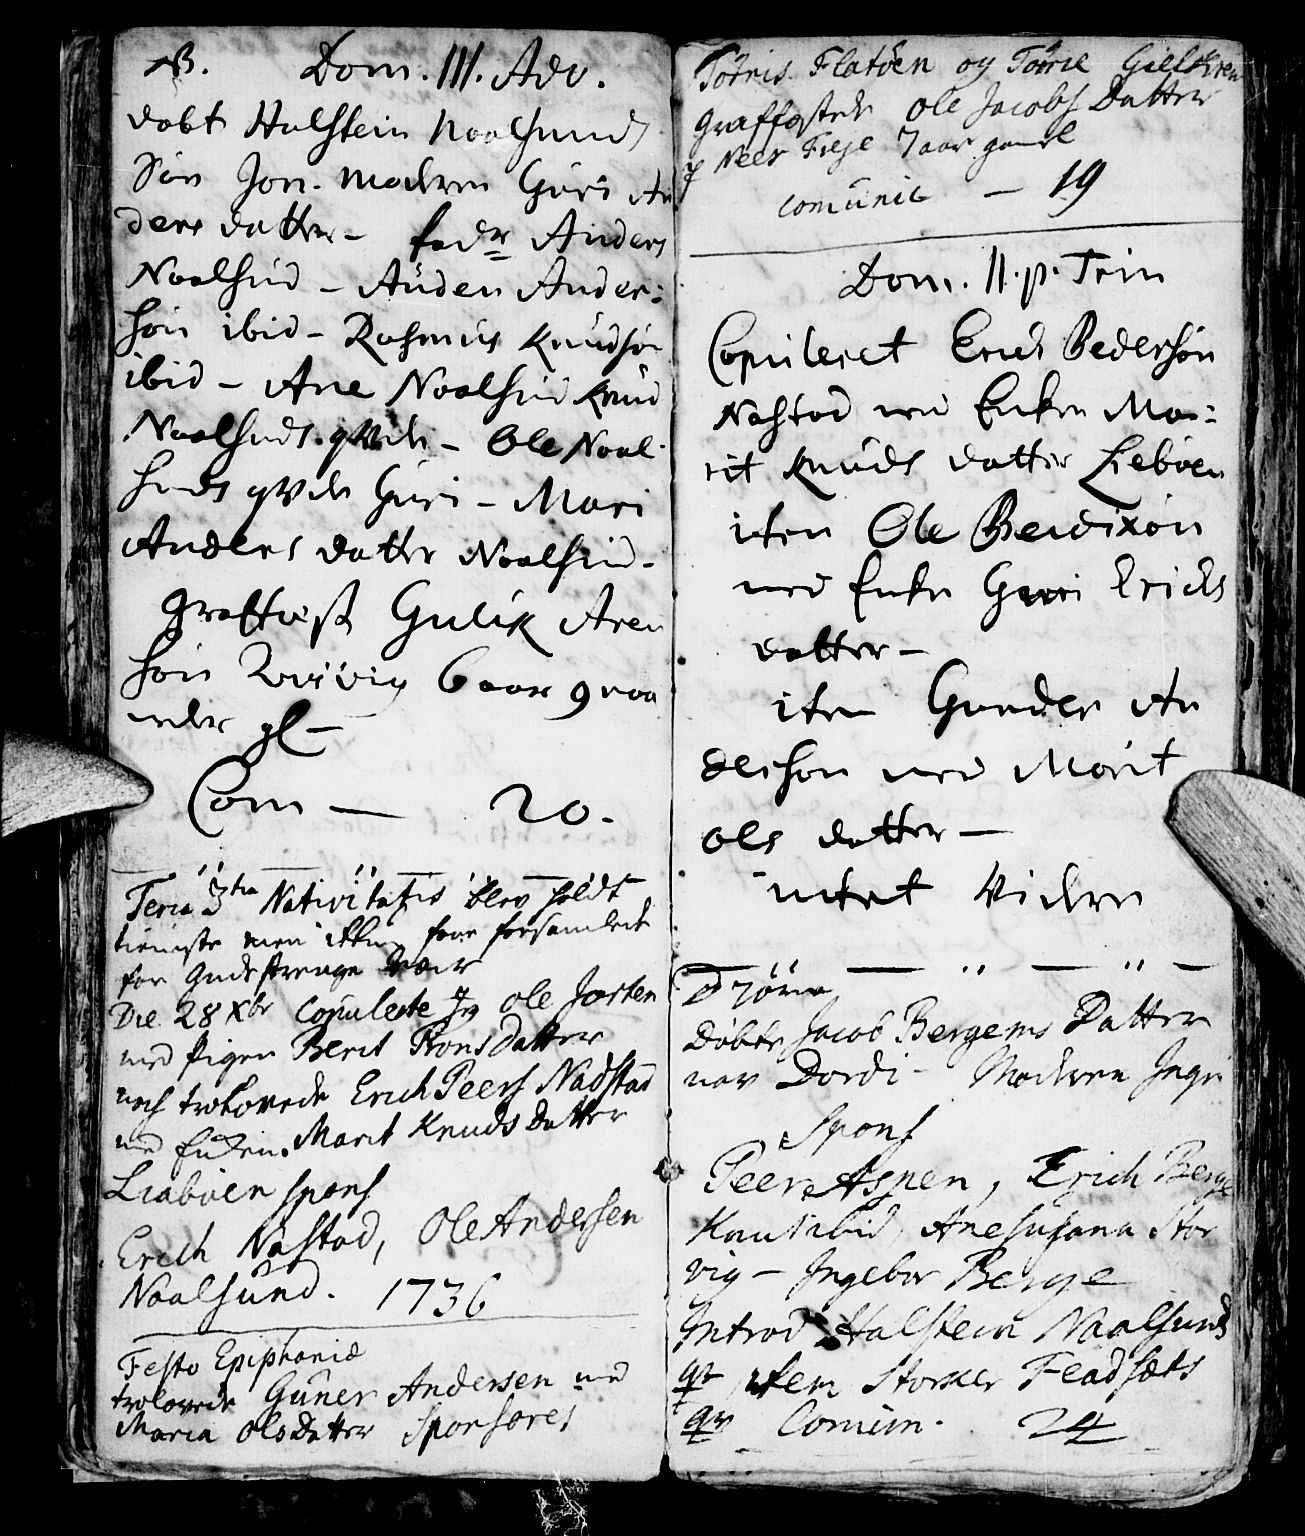 NB. Dom. III. Adv.
døbt Halstein Naalsunds
Søn Jon. moderen Guri An
ders datter - fadr Anders
Naalsund - Auden Ander:
søn ibid - Rasmus Knudsøn
ibid - Ane Naalsund Knud
Naalsunds qvde - Ole Naal
sunds qvde Guri - Mari
Anders datter Naalsund -
Graffæst Gulik Aren
søn 6 aar
gl -
Com - 20.
Feria 3tia Nativitatis blev holdt
tienneste men ikke forsamlede
for Guds strenge Veir
Die 28 Xbr copulerte Jeg Ole Josten
med pigen Berit Rons Datter
noch trolovede Erich Peers Nadstad
med Enken Marit Knuds Datter
Liabøen spons
Erich Nastad, Ole Andersen
Naalsund. 1736
Festo Epiphaniæ
trolovede Guner Andersen med
Maria Olsdatter Sponsores
Tørris Flatøen og Tørrie Gielskren
Graffæstede Ole Jacobs Datter
Neer Freje 7 aar gamel
comunic - 19
Dom. II. p. Trin
Copuleret Erich Pedersøn
Nastad med Enken Ma:
rit Knuds datter Liebøen
item Ole Bendixøn
med Enke Guri Erichs
datter -
item Gunder An
dersøn med Marit
Ols datter -
intet Videre
Døbte Jacob Bergems Datter
nav Dordi - Moderen Ingri
Spons
Peer Aspen, Erich Berge
Knut ibid, Anesusana Stor
vig - Ingebor Berge
Introd Halstein Naalsunds
qv item Storker Fladsæts
qv Comun. 24